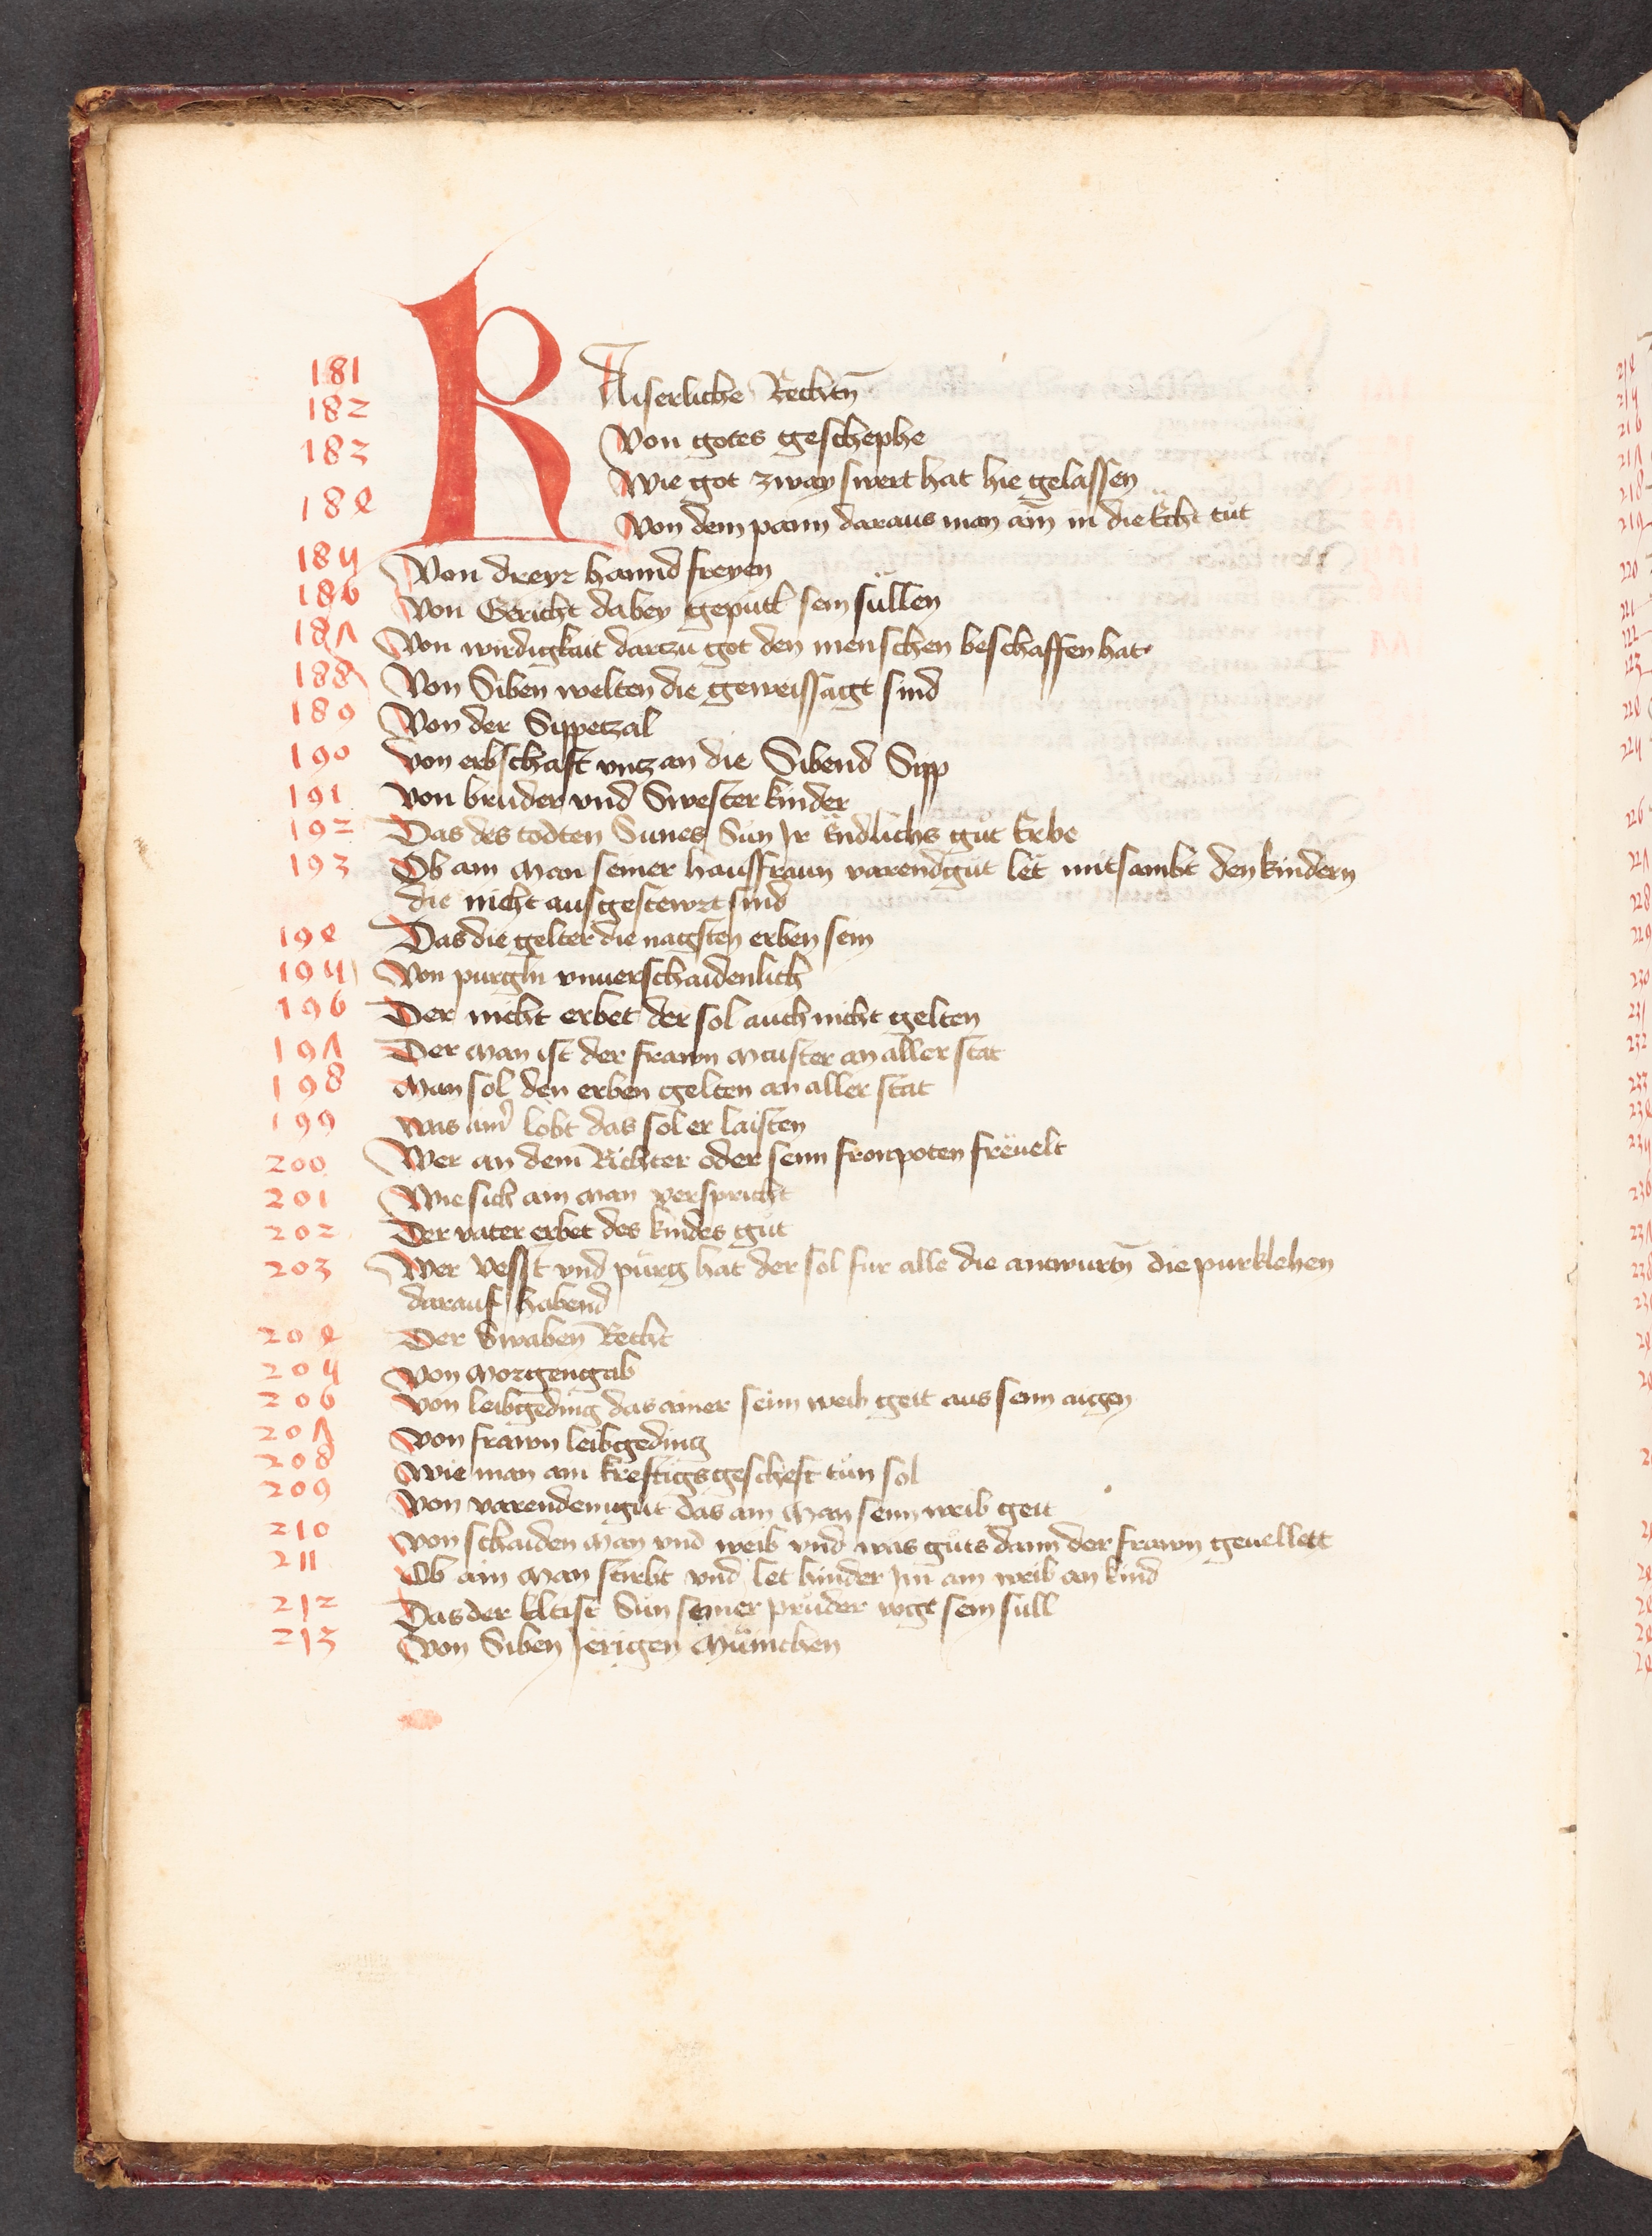 181 KAiserliche Rechtn̄
182 Von gotes geschephe
183 Wie got zway swert hat hie gelassen
184 Von dem pann daraus man ain in die Ëcht tu̇t
185 Von dreyr hannd freyen
186 Von Gericht dabey gepütl sein süllen
187 Von wirdigkait darczu got den menschen beschaffen hat
188 Von Siben welten die geweissagt sind
189 Von der Sippetzal
190 Von erbschaft vntz an die Sibend Sipp
191 Von bruder vnd Swester kinder
192 Das des todten Sunes Sun Ir Endlichs gu̇t Erbe
193 Ob ain Man seiner hausfraun varendgu̇t let mitsambt den kindern
die nicht ausgestewrt sind
194 Das die gelter die nagsten erben sein
195 Von purgln vnuerschaidenlich
196 Der nicht erbet der sol auch nicht gelten
197 Der Man ist der frawn Maister an aller stat
198 Man sol den erben gelten an aller stat
199 Was ainr lobt das sol er laisten
200 Wer an dem Richter oder seim fronpoten freuelt
201 Wie sich ain Man verspricht
202 Der vater erbet des kindes gu̇t
203 Wer Vesst vnd pürg hat der sol fur alle die antwurtn̄ die purklehen
darauf habend
204 Der Swaben Recht
205 Von Morgengab
206 Von leibgeding das ainer seim weib geit aus seim aigen
207 Von frawn leibgeding
208 Wie man ain kreftigs gescheft tu̇n sol
209 Von varendemgu̇t das ain Man seim weib geit
210 Von schaiden Man vnd weib vnd was gu̇ts dann der frawn geuellett
211 Ob ain Man stirbt vnd let hinder Im ain weib an kind
212 Das der Eltist Sun seiner pruder vogt sein sull
213 Von Siben Jërigen Münichen